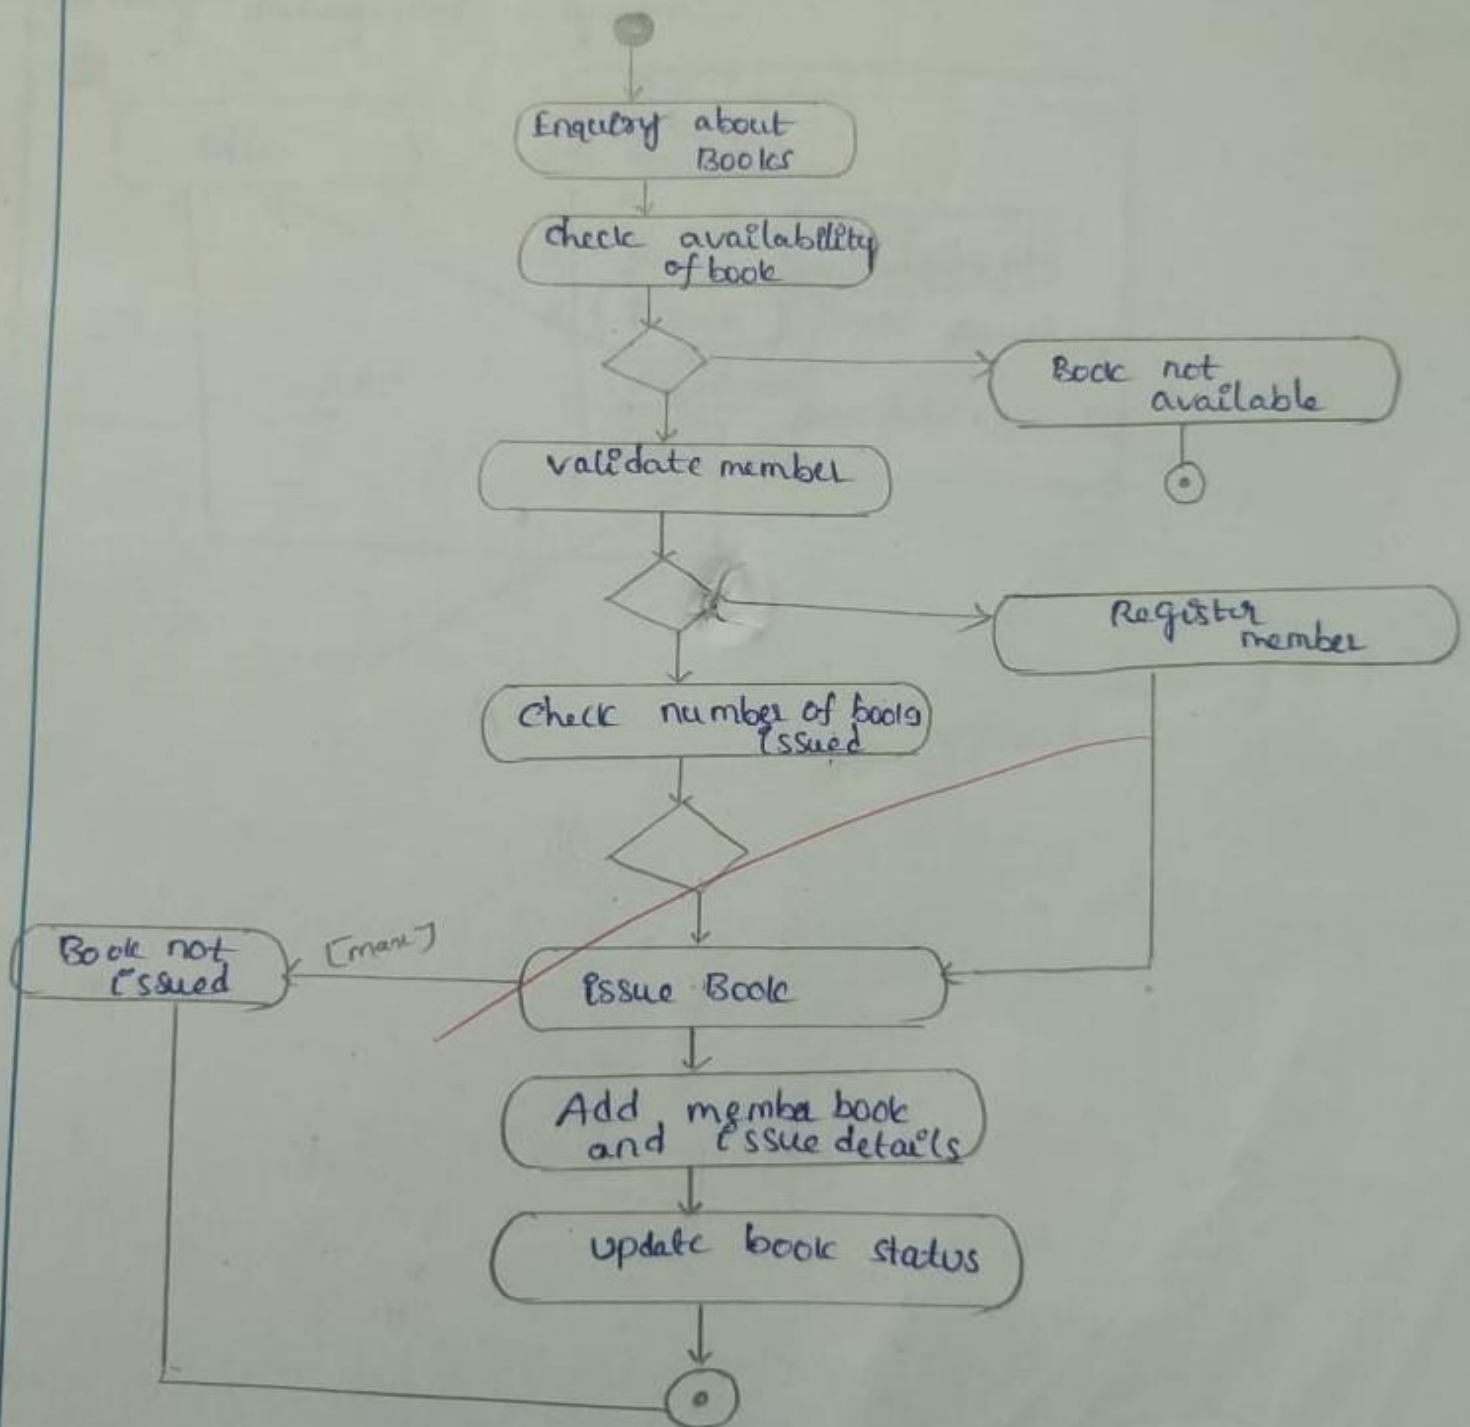 Enquiry about
Books
check availability
of book
Book not
available
validate member
Register
member
Check number of books
issued
Book not
issued
[max]
issue Book
Add member book
and issue details
update book status